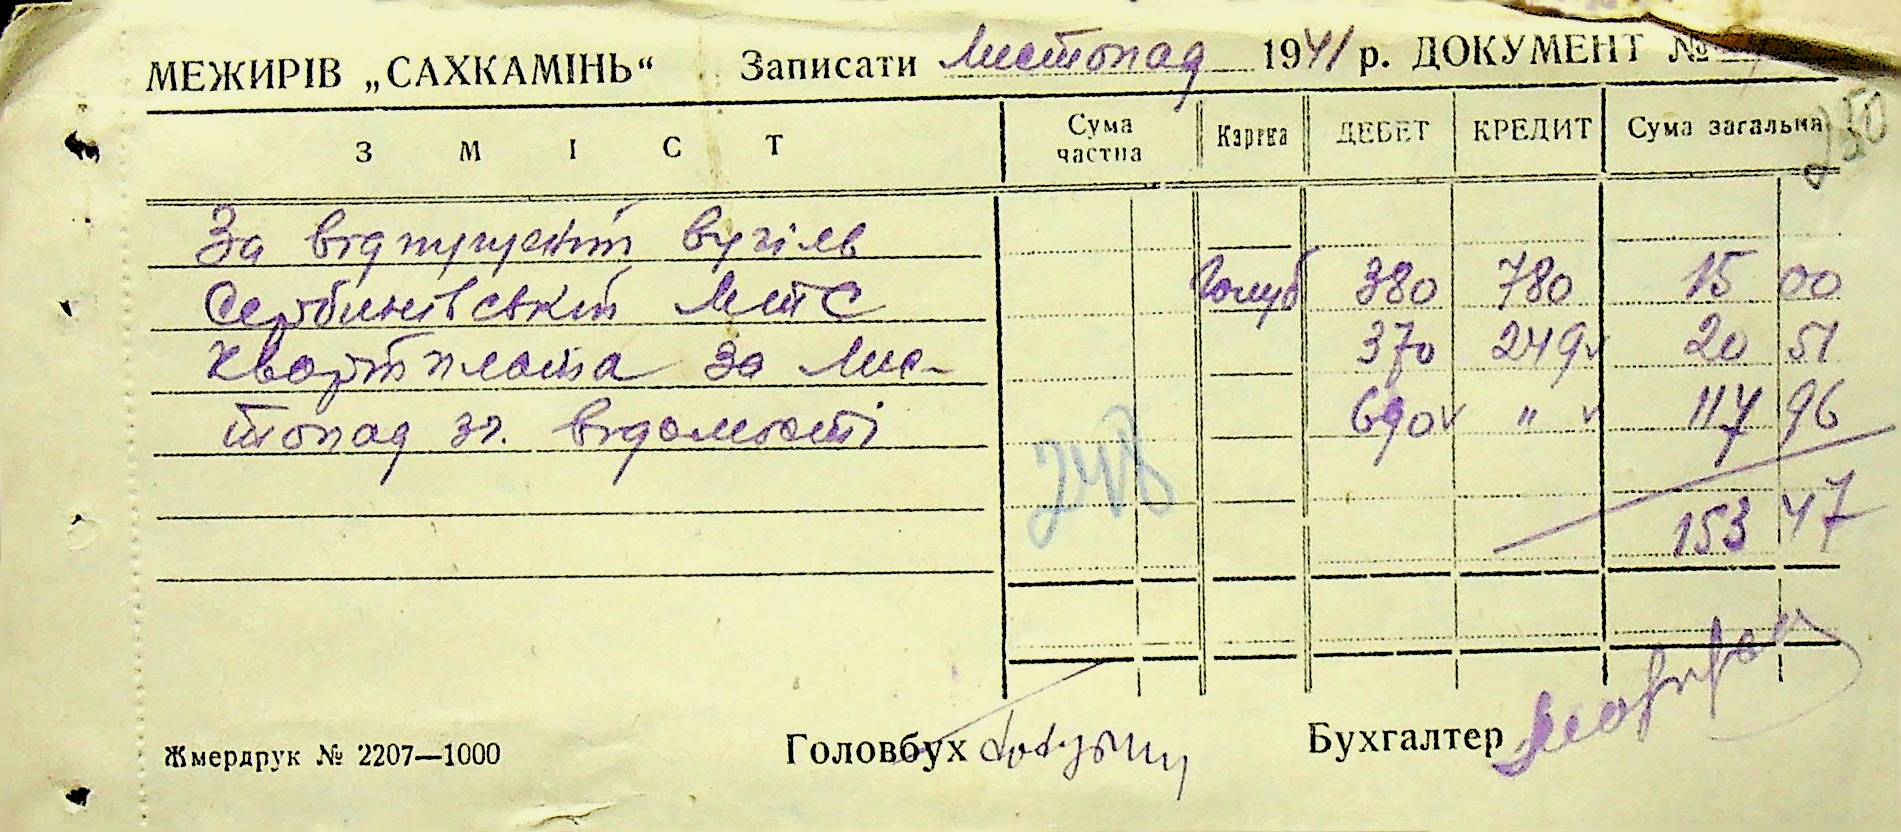 МЕЖИРІВ „САХКАМІНЬ“ Записати Листопад 1941 р. ДОКУМЕНТ №
250
ЗМІСТ Сума частна Картка ДЕБЕТ КРЕДИТ Сума загальна
За відпущений вугіль
Сербинівській МТС Голуб 380 780 15 00
Квартплата за Лис- 370 249 20 51
топад зг. відомості 690 " 117 96
153 47
Жмердрук № 2207—1000 Головбух Бухгалтер